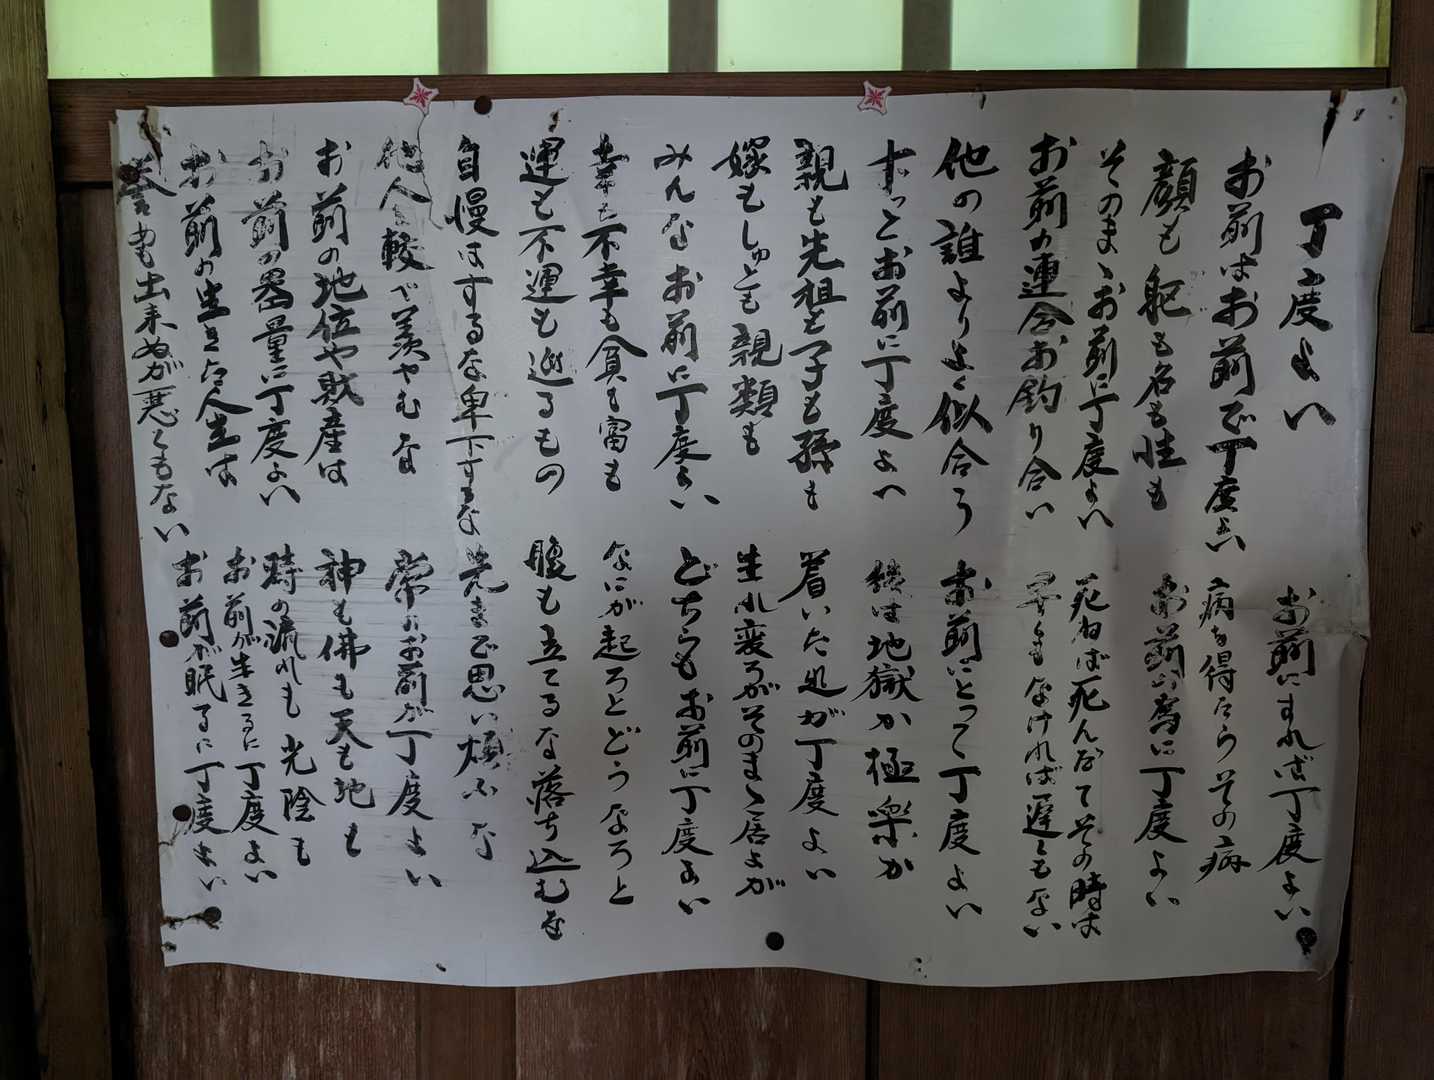 丁度よい
お前はお前で丁度よい
顔も躰も名も性も
そのまゝお前に丁度よい
お前の連合お釣り合い
他の誰よりよく似合う
お前に丁度よい
親も先祖も子も孫も
嫁もしゅとも親類も
みんなお前に丁度よい
幸も不幸も貧も富も
運も不運も巡るもの
自慢はするな卑下するな
他人と較べ羨やむな
お前の地位や財産は
お前の器量に丁度よい
お前の生きた人生は
も出来ぬが悪くもない
お前にすれば丁度よい
病を得たらその病
お前の為に丁度よい
死ねば死んだてその時は
早くもなければ遅くもない
お前にとって丁度よい
後は地獄か極楽か
着いた処が丁度よい
生れ変ろがそのまゝ居よが
どちらもお前に丁度よい
なにが起ろとどうなろと
腹も立てるな落ち込むな
先まで思い煩ふな
常にお前が丁度よい
神も佛も天も地も
時の流れも光陰も
お前が生きるに丁度よい
お前が眠るに丁度よい